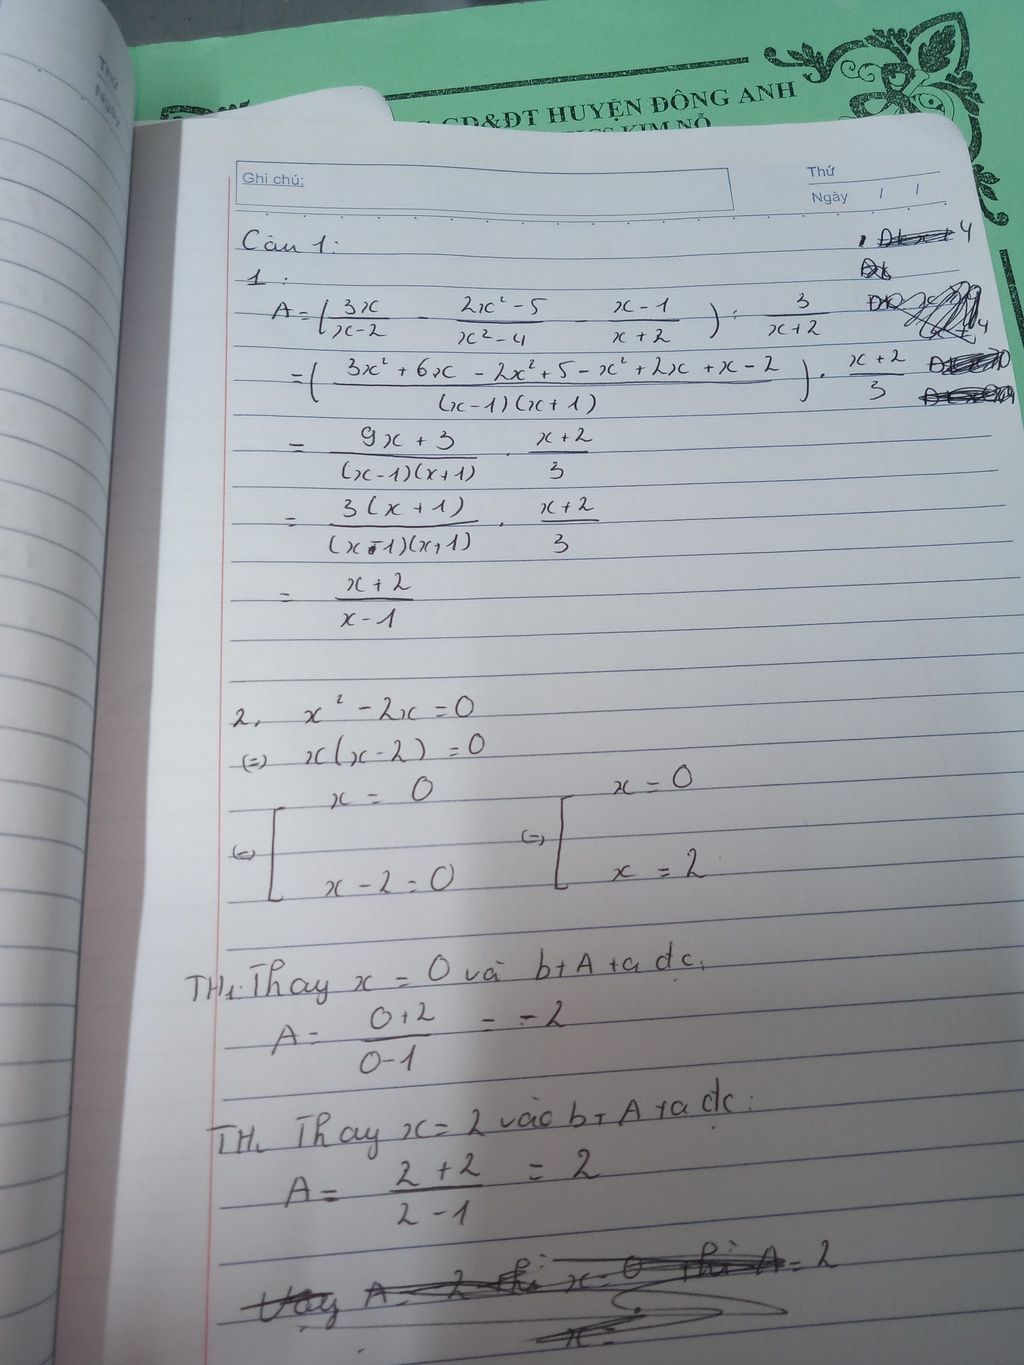 GD&ĐT HUYỆN ĐÔNG ANH
KIM NỖ
Thứ
Ngày
Ghi chú:
Thứ
Ngày / /
Câu 1:
1:
A = (3x/(x-2) - (2x²-5)/(x²-4) - (x-1)/(x+2)) : 3/(x+2)
= ((3x² + 6x - 2x² + 5 - x² + 2x + x - 2)/((x-1)(x+1))) . (x+2)/3
= (9x + 3)/((x-1)(x+1)) . (x+2)/3
= 3(x+1)/((x-1)(x+1)) . (x+2)/3
= (x+2)/(x-1)
2, x² - 2x = 0
(=) x(x-2) = 0
(=) [ x = 0 (=) [ x = 0
x - 2 = 0 x = 2
TH1: Thay x = 0 và b+ A +a dc,
A = (0+2)/(0-1) = -2
TH2 Thay x = 2 vào b+ A +a dc:
A = (2+2)/(2-1) = 2
Vậy A = 2 thì x = 0 thì A = 2
x =